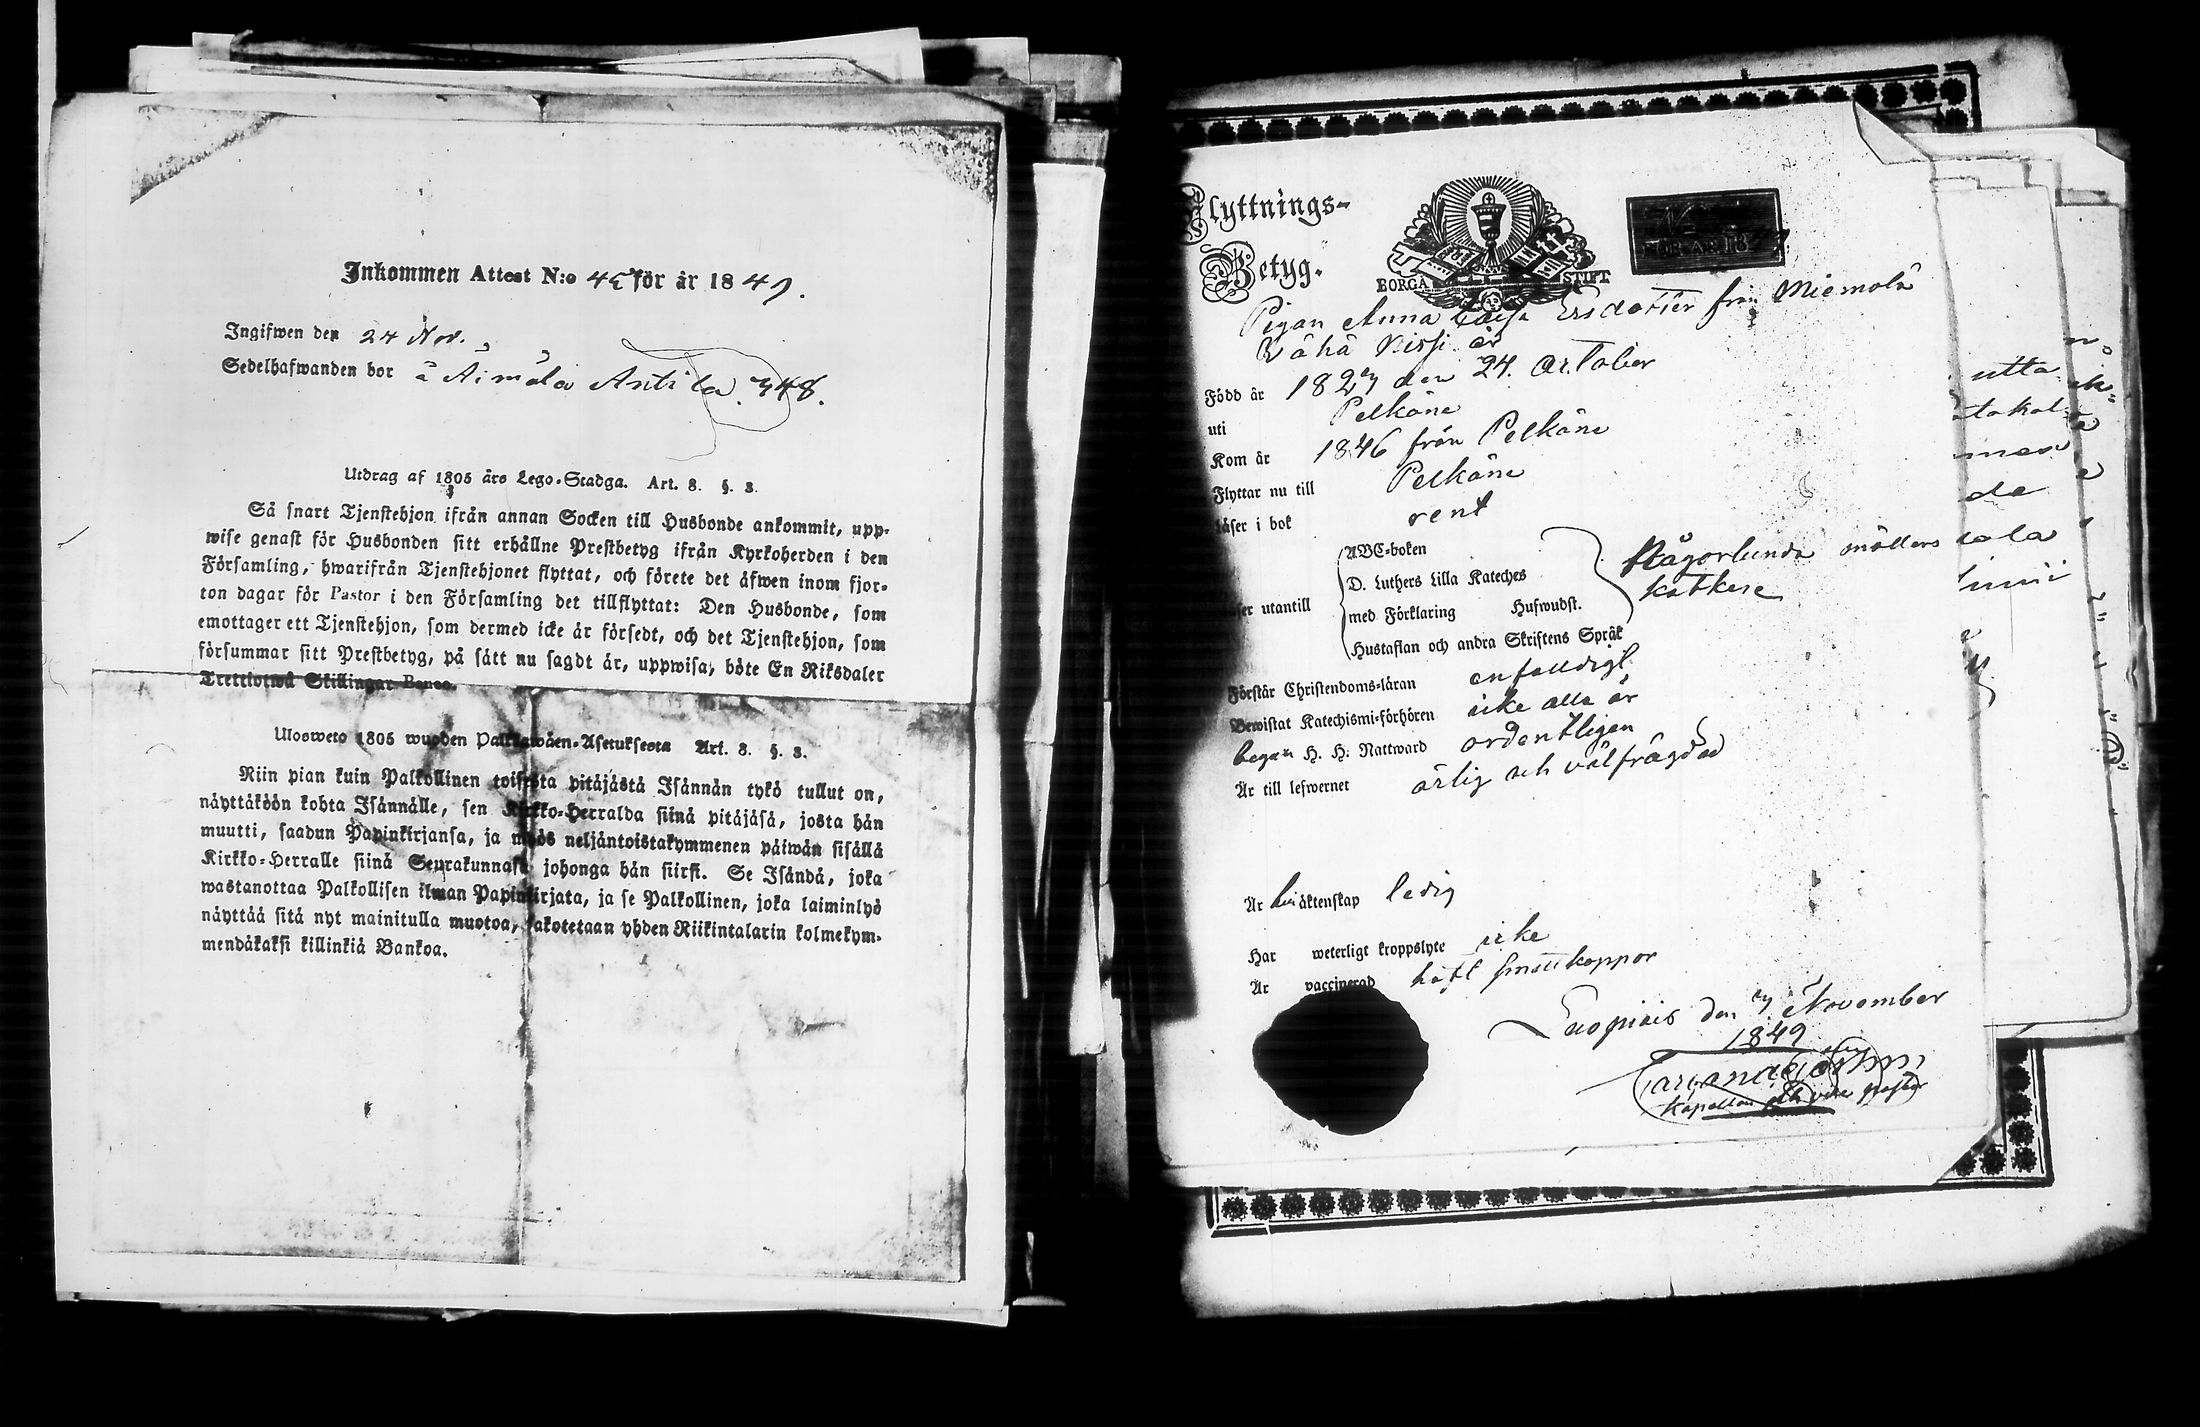 Inkommen Attest N:o 45 för år 1849.
Ingifwen den 24 Nov.
Sedelhafwanden bor å Äimälä Antila. 348.
Utdrag af 1805 års Lego-Stadga. Art. 8. §. 3.
Så snart Tjenstehjon ifrån annan Socken till Husbonde ankommit, upp-
wise genast för Husbonden sitt erhållne Prestbetyg ifrån Kyrkoherden i den
Församling, hwarifrån Tjenstehjonet flyttat, och förete det äfwen inom fjor-
ton dagar för Pastor i den Församling det tillflyttat: Den Husbonde, som
emottager ett Tjenstehjon, som dermed icke är försedt, och det Tjenstehjon, som
försummar sitt Prestbetyg, på sätt nu sagdt är, uppwisa, böte En Riksdaler
Trettiotwå Skillingar Banco.
Ulosweto 1805 wuoden Palkkawäen-Asetuksesta Art. 8. §. 3.
Niin pian kuin Palkollinen toisesta pitäjästä Isännän tykö tullut on,
näyttäköön kohta Isännälle, sen Kirkko-Herralda siinä pitäjäsä, josta hän
muutti, saadun Papinkirjansa, ja myös neljäntoistakymmenen päiwän sisällä
Kirkko-Herralle siinä Seurakunnasa johonga hän siirsi. Se Isändä, joka
wastanottaa Palkollisen ilman Papinkirjata, ja se Palkollinen, joka laiminlyö
näyttää sitä nyt mainitulla muotoa, sakotetaan yhden Riikintalarin kolmekym-
mendäkaksi killinkiä Bankoa.
Flyttnings-
Betyg.
BORGÅ STIFT
FÖR ÅR 18
Pigan Anna Caisa Ersdotter från Miemola
Vähä Nissi är
Född år 1827 den 24. October
uti Pelkäne
Kom år 1846 från Pelkäne
Flyttar nu till Pelkäne
Läser i bok rent
Läser utantill
ABC-boken
D. Luthers Lilla Kateches
med Förklaring Hufwudst.
Hustaflan och andra Skriftens Språk
Någorlunda
Förstår Christendoms-läran enfaldigt
Bewistat Katechismi-förhören icke alla år
begått H. H. Nattward ordentligen
Är till lefwernet ärlig och välfrägdad
Är äktenskap ledig
Har weterligt kroppslyte icke
Är vaccinerad haft smittkoppor
Luopiois den 7 November
1849
Kapellan och vice pastor